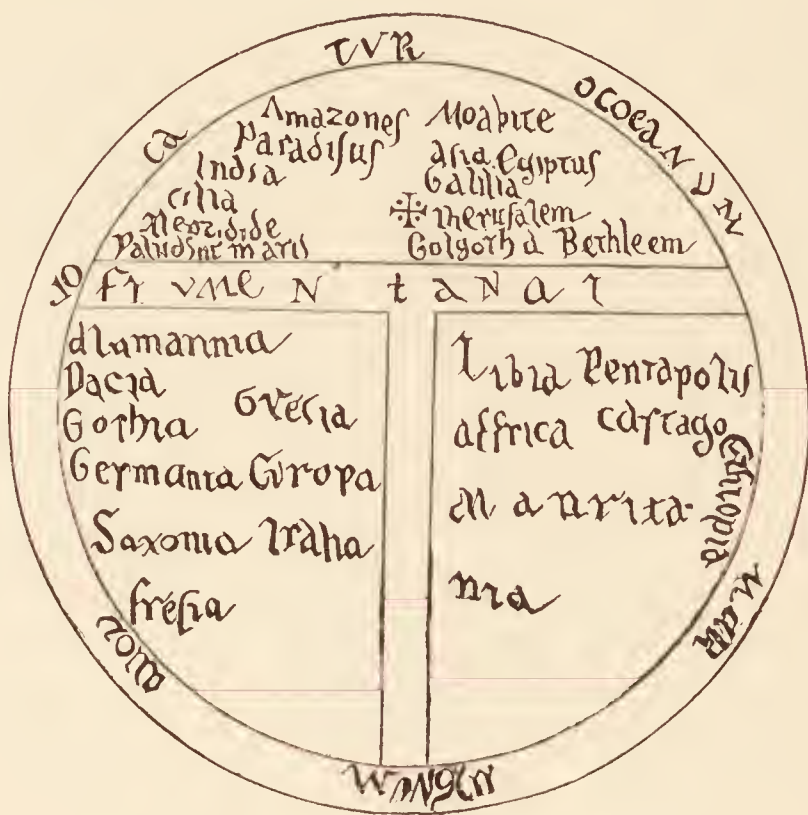 TVR
OCOEANUM
ca
Amazones
Paradisus
India
cilia
Paludint maris
Moabite
asia Egiptus
Galilia
Iherusalem
Golgotha Bethleem
Fl vme N t a N a I
alumannia
Dacia
Gothia Gresia
Germania Europa
Saxonia Italia
fresia
Libia Pentapolis
affrica Cartago
Ethiopia
M a uri ta-
nia